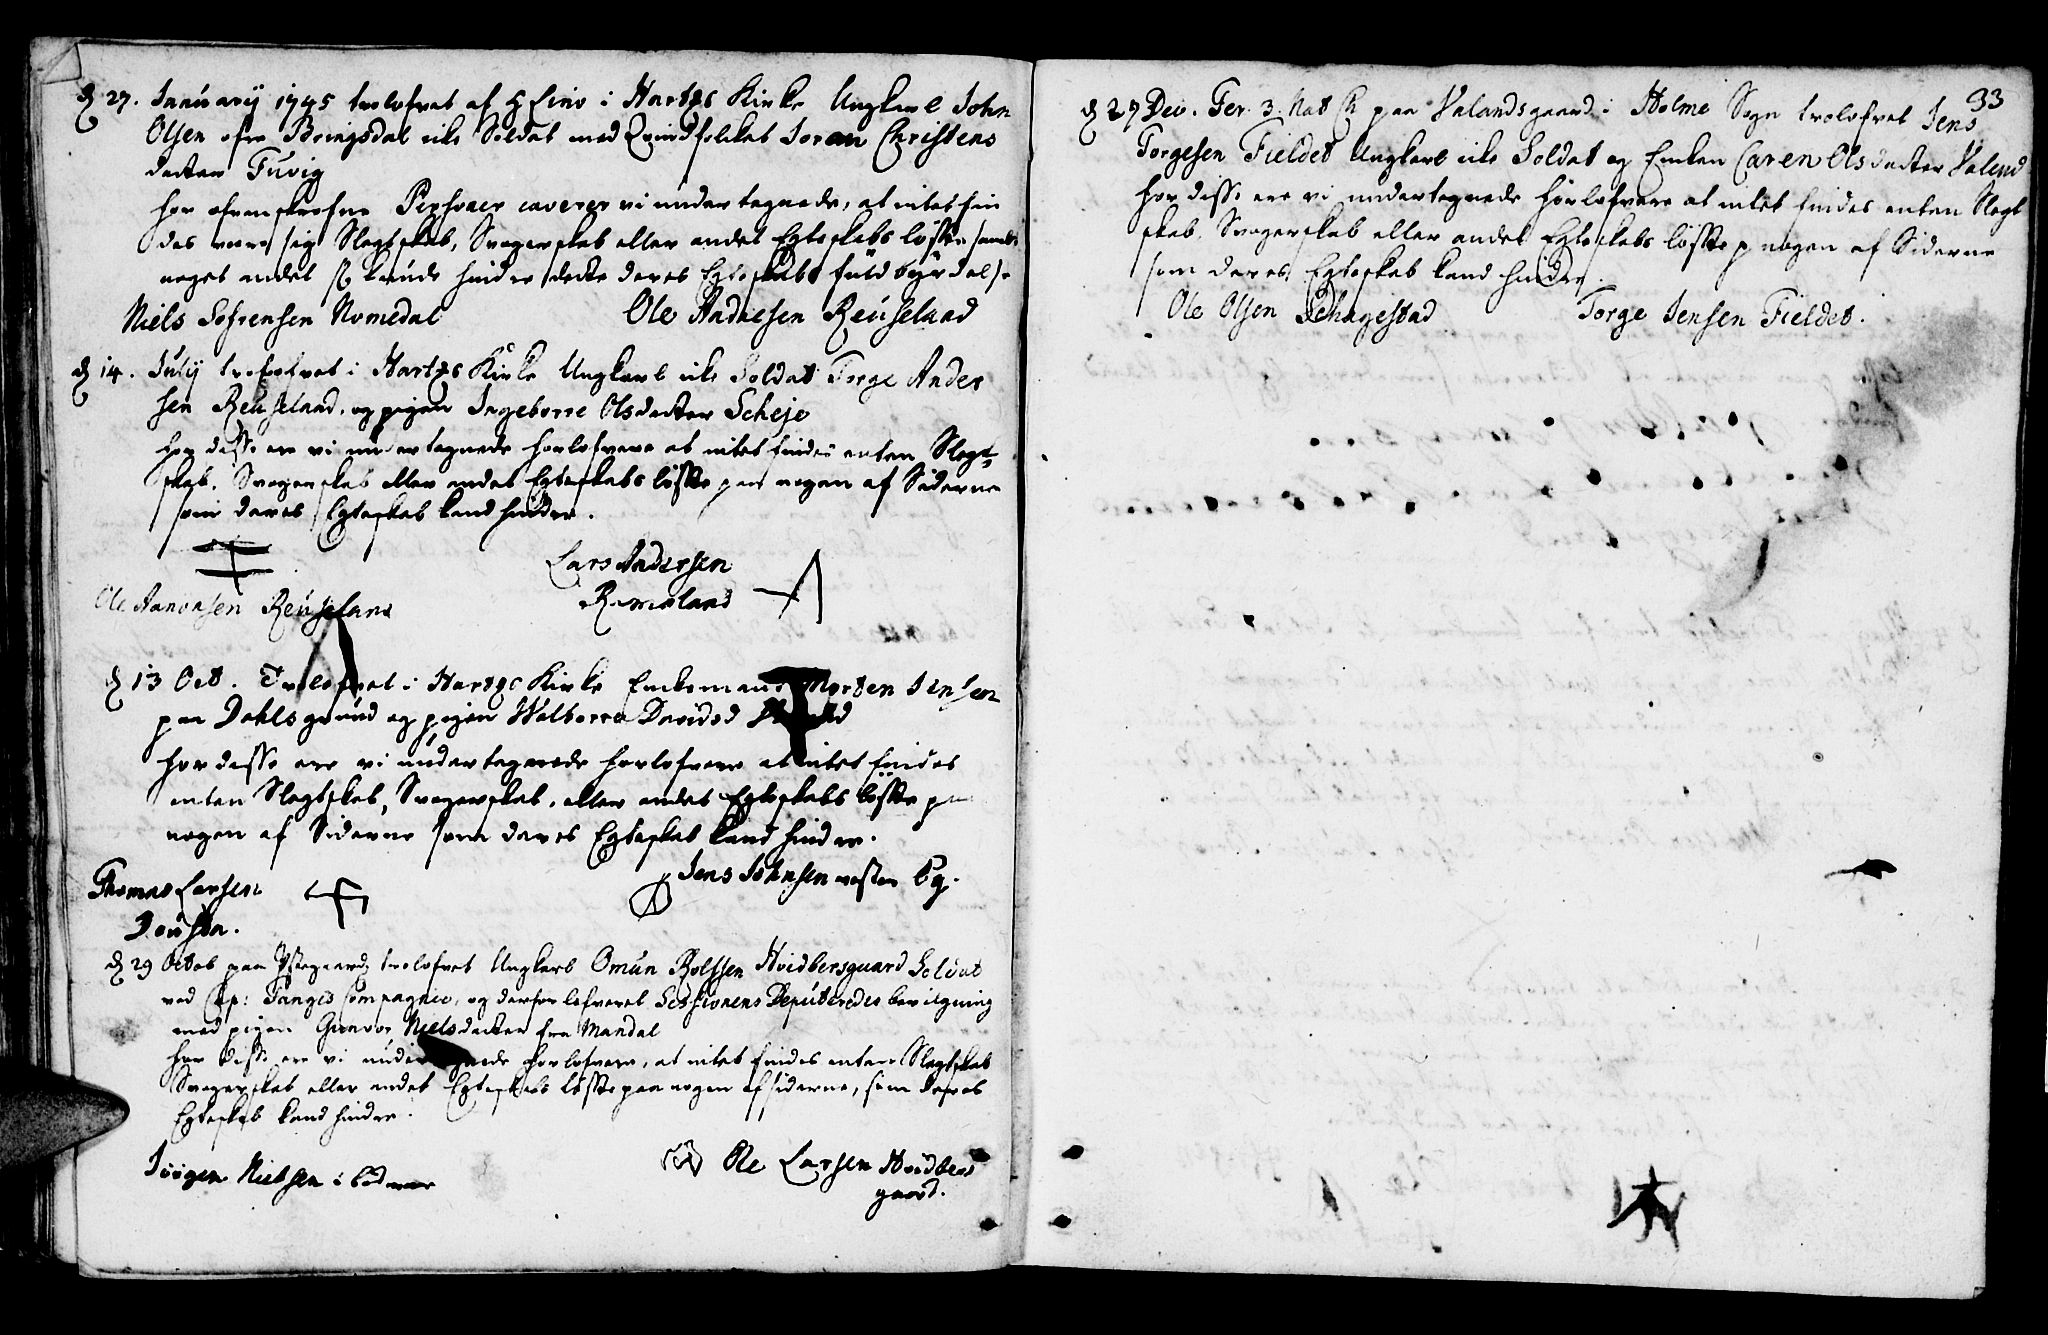 d 27. Januarÿ 1745 trolofvet af H Lino i Hartgs Kirke Ungkarl John
Olsen ofre Bringsdal icke Soldat med Qvindfolket Joran Christens
datter Tuvig
for ofvenskrefne Persohner caverer vi undertegnede, at intet fin
des være sig Slegtskab, Svogerskab eller andet Egteskabs løfte samt
noget andet kunde hindre dette deres Egteskabs fuldbyrdelse
Niels Sofrensen Nomedal Ole Andresen Reuseland
d 14. Julÿ trolofvet i Hartgs Kirke Ungkarl icke Soldat Torge Ander
sen Reuseland, og pigen Ingeborre Olsdatter Scheje
for disse ere vi undertegnede forlofvere at intet findes enten Slegt
skab, Svogerskab eller andet Egteskabs løfte paa nogen af Siderne
som deres Egteskab kand hindre.
Lars Andersen
Ole Aanonsen Reuseland
d 13 Oct. Trolofvet i Hartgs Kirke Enkemand Morten Jensen
paa Dahlsgrund og pigen Walborre Davidsd
for disse ere vi undertegnede forlofvere at intet findes
enten Slegtskab, Svogerskab, eller andet Egteskabs løfte paa
nogen af Siderne som deres Egteskab kand hindre.
Thomas Larsen Jens Johnsen vesten Bÿ.
d 29 Octob paa Ystegaard trolofvet Ungkarl Omun Rolfsen Hvidbersgaard Soldat
ved Cap: Tangis Compagnie, og derfor lefveret Sessionens Deputeredes bevilgning
med pigen Gunvor Nielsdatter fra Mandal
for disse ere vi undertegnede forlofvere, at intet findes enten Slegtskab
Svogerskab eller andet Egteskabs løfte paa nogen af siderne, som deres
Egteskab kand hindre.
Jörgen Nielsen i Ole Larsen Hvidbers
gaard.
33
d 27 Dec. Fer. 3. Nat Ch paa Valandsgaard i Holme Sogn trolofvet Jens
Torgesen Fieldet Ungkarl icke Soldat og Enken Caren Olsdatter Valand
for disse ere vi undertegnede forlofvere at intet findes enten Slegt
skab, Svogerskab eller andet Egteskabs løfte p nogen af Siderne
som deres Egteskab kand hindre.
Ole Olsen Torge Jensen Fieldet.